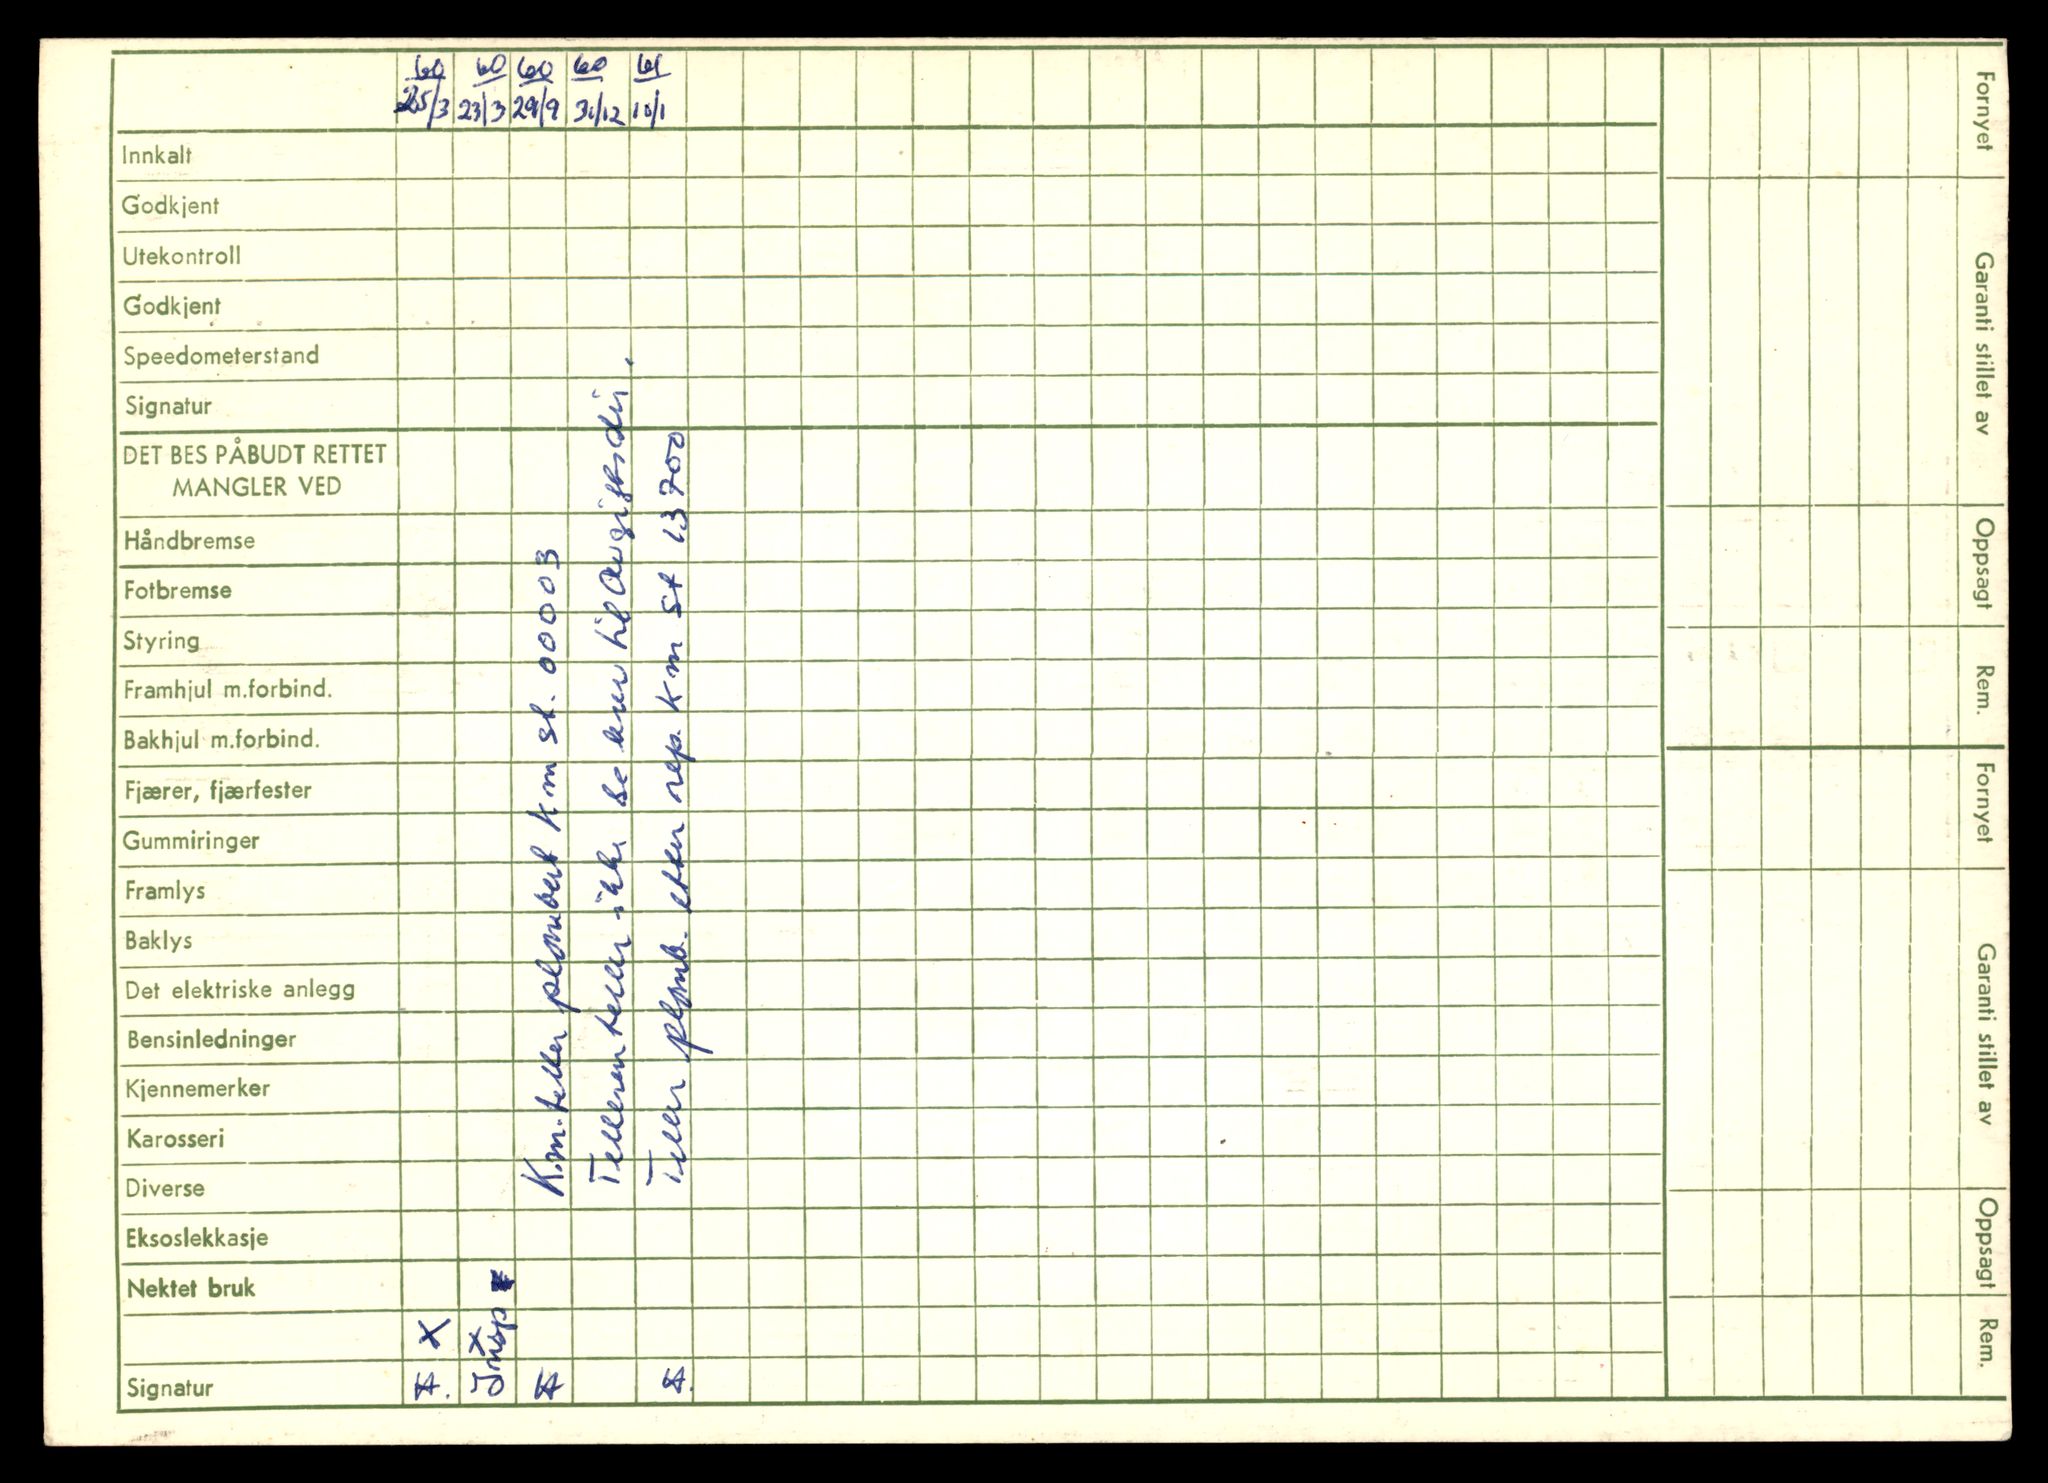 60 60 60 60 61
25/3 23/3 29/9 31/12 10/1
Innkalt
Godkjent
Utekontroll
Godkjent
Speedometerstand
Signatur
DET BES PÅBUDT RETTET
MANGLER VED
Håndbremse
Fotbremse
Styring
Framhjul m.forbind.
Bakhjul m.forbind.
Fjærer, fjærfester
Gummiringer
Framlys
Baklys
Det elektriske anlegg
Bensinledninger
Kjennemerker
Karosseri
Diverse
Eksoslekkasje
Nektet bruk
X X
Signatur
Km. teller plombert km st. 00003
Telleren teller ikke se brev til Avgiftsdir.
Teller plomb. etter rep. km st 13700
Fornyet
Garanti stillet av
Oppsagt
Rem.
Fornyet
Garanti stillet av
Oppsagt
Rem.